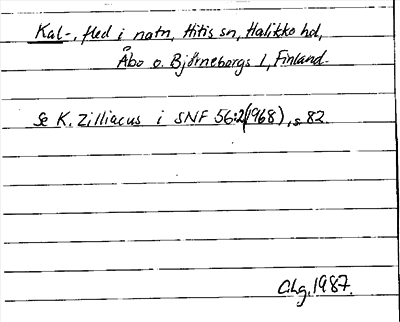 Kal-, fled i natn, Hitis sn, Halikko hd,
Åbo o. Björneborgs l, Finland.
Se K. Zilliacus i SNF 56:2(1968), s 82.
C.Lg. 1987.